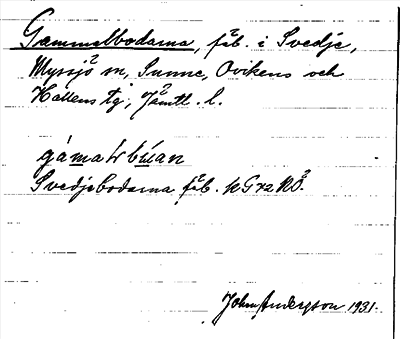 Gammelbodarna, fäb. i Svedje,
Myssjö sn, Sunne, Ovikens och
Hallens tg, Jämtl. l.
gámaƚr búan
Svedjebodarna fäb. kG x2 NÖ.
John Andersson 1931.